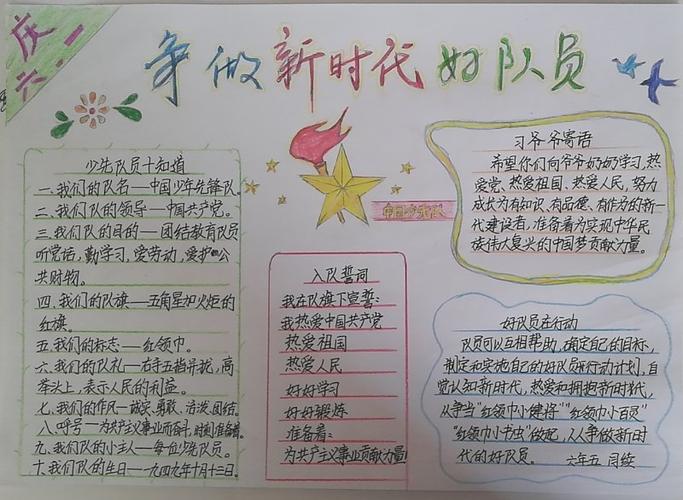 庆
六.一
争做新时代好队员
少先队员十知道
一、我们的队名——中国少年先锋队。
二、我们队的领导——中国共产党。
三、我们队的目的——团结教育队员
听党话，勤学习，爱劳动，爱护公
共财物。
四、我们的队旗——五角星加火炬的
红旗。
五、我们的标志——红领巾。
六、我们的队礼——右手五指并拢，高
举头上，表示人民的利益。
七、我们的作风——诚实、勇敢、活泼、团结。
八、呼号——为共产主义事业而奋斗，时刻准备着。
九、我们队的小主人——每位少先队员。
十、我们队的生日——一九四九年十月十三日。
中国少先队
入队誓词
我在队旗下宣誓：
我热爱中国共产党
热爱祖国
热爱人民
好好学习
好好锻炼
准备着：
为共产主义事业贡献力量
习爷爷寄语
希望你们向爷爷奶奶学习，热
爱党、热爱祖国、热爱人民，努力
成长为有知识、有品德、有作为的新一
代建设者，准备着为实现中华民
族伟大复兴的中国梦贡献力量。
好队员在行动
队员可以互相帮助，确定自己的目标，
制定和实施自己的好队员行动计划，自
觉认知新时代，热爱和拥抱新时代，
从争当“红领巾小健将”“红领巾小百灵”
“红领巾小书虫”做起，人人争做新时
代的好队员。
六年五